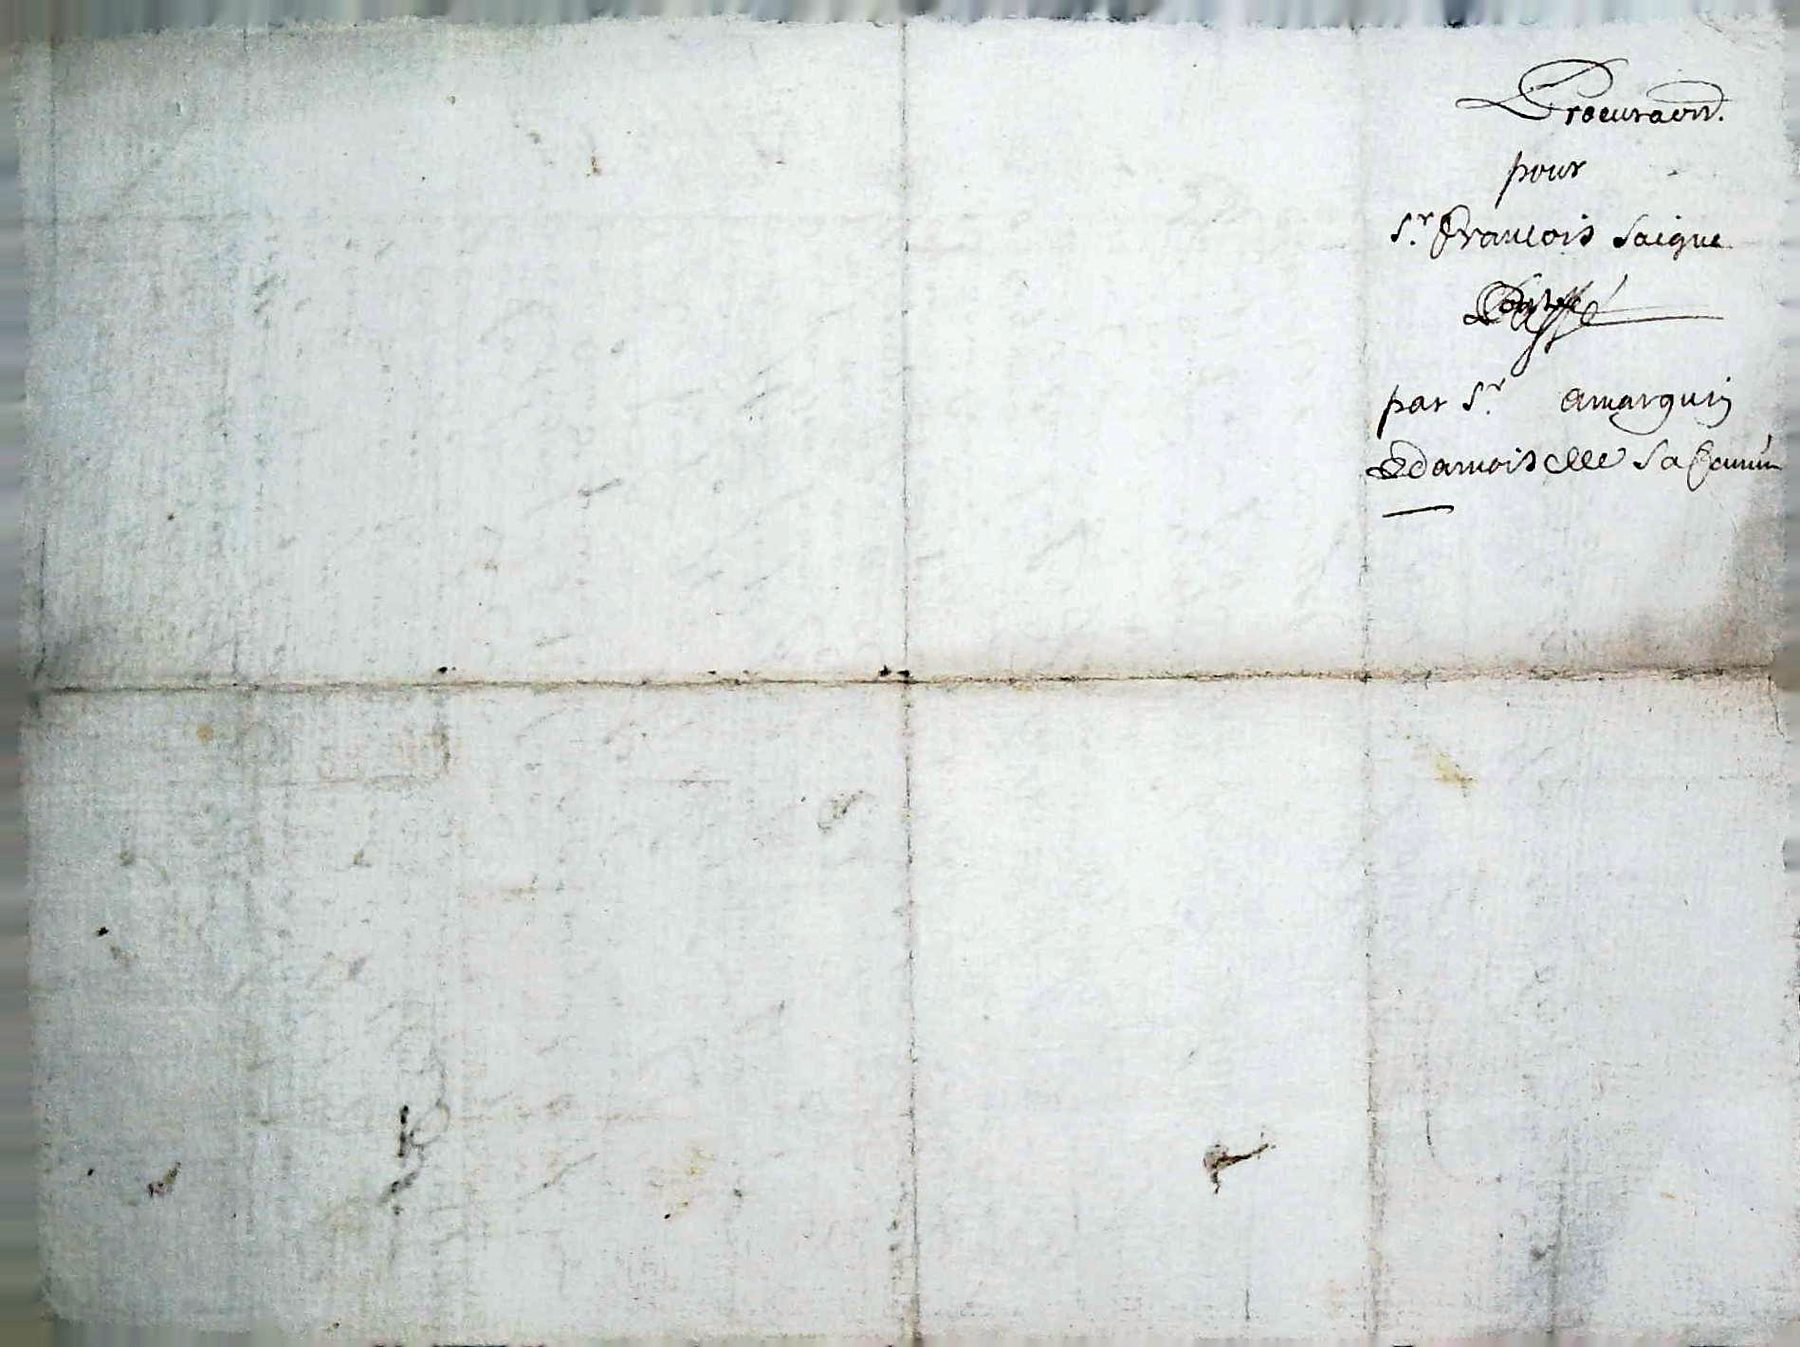 Procuraon.
pour
Sr. François Saigne
Passé
par Sr. amarguin
Et damoiselle sa femme